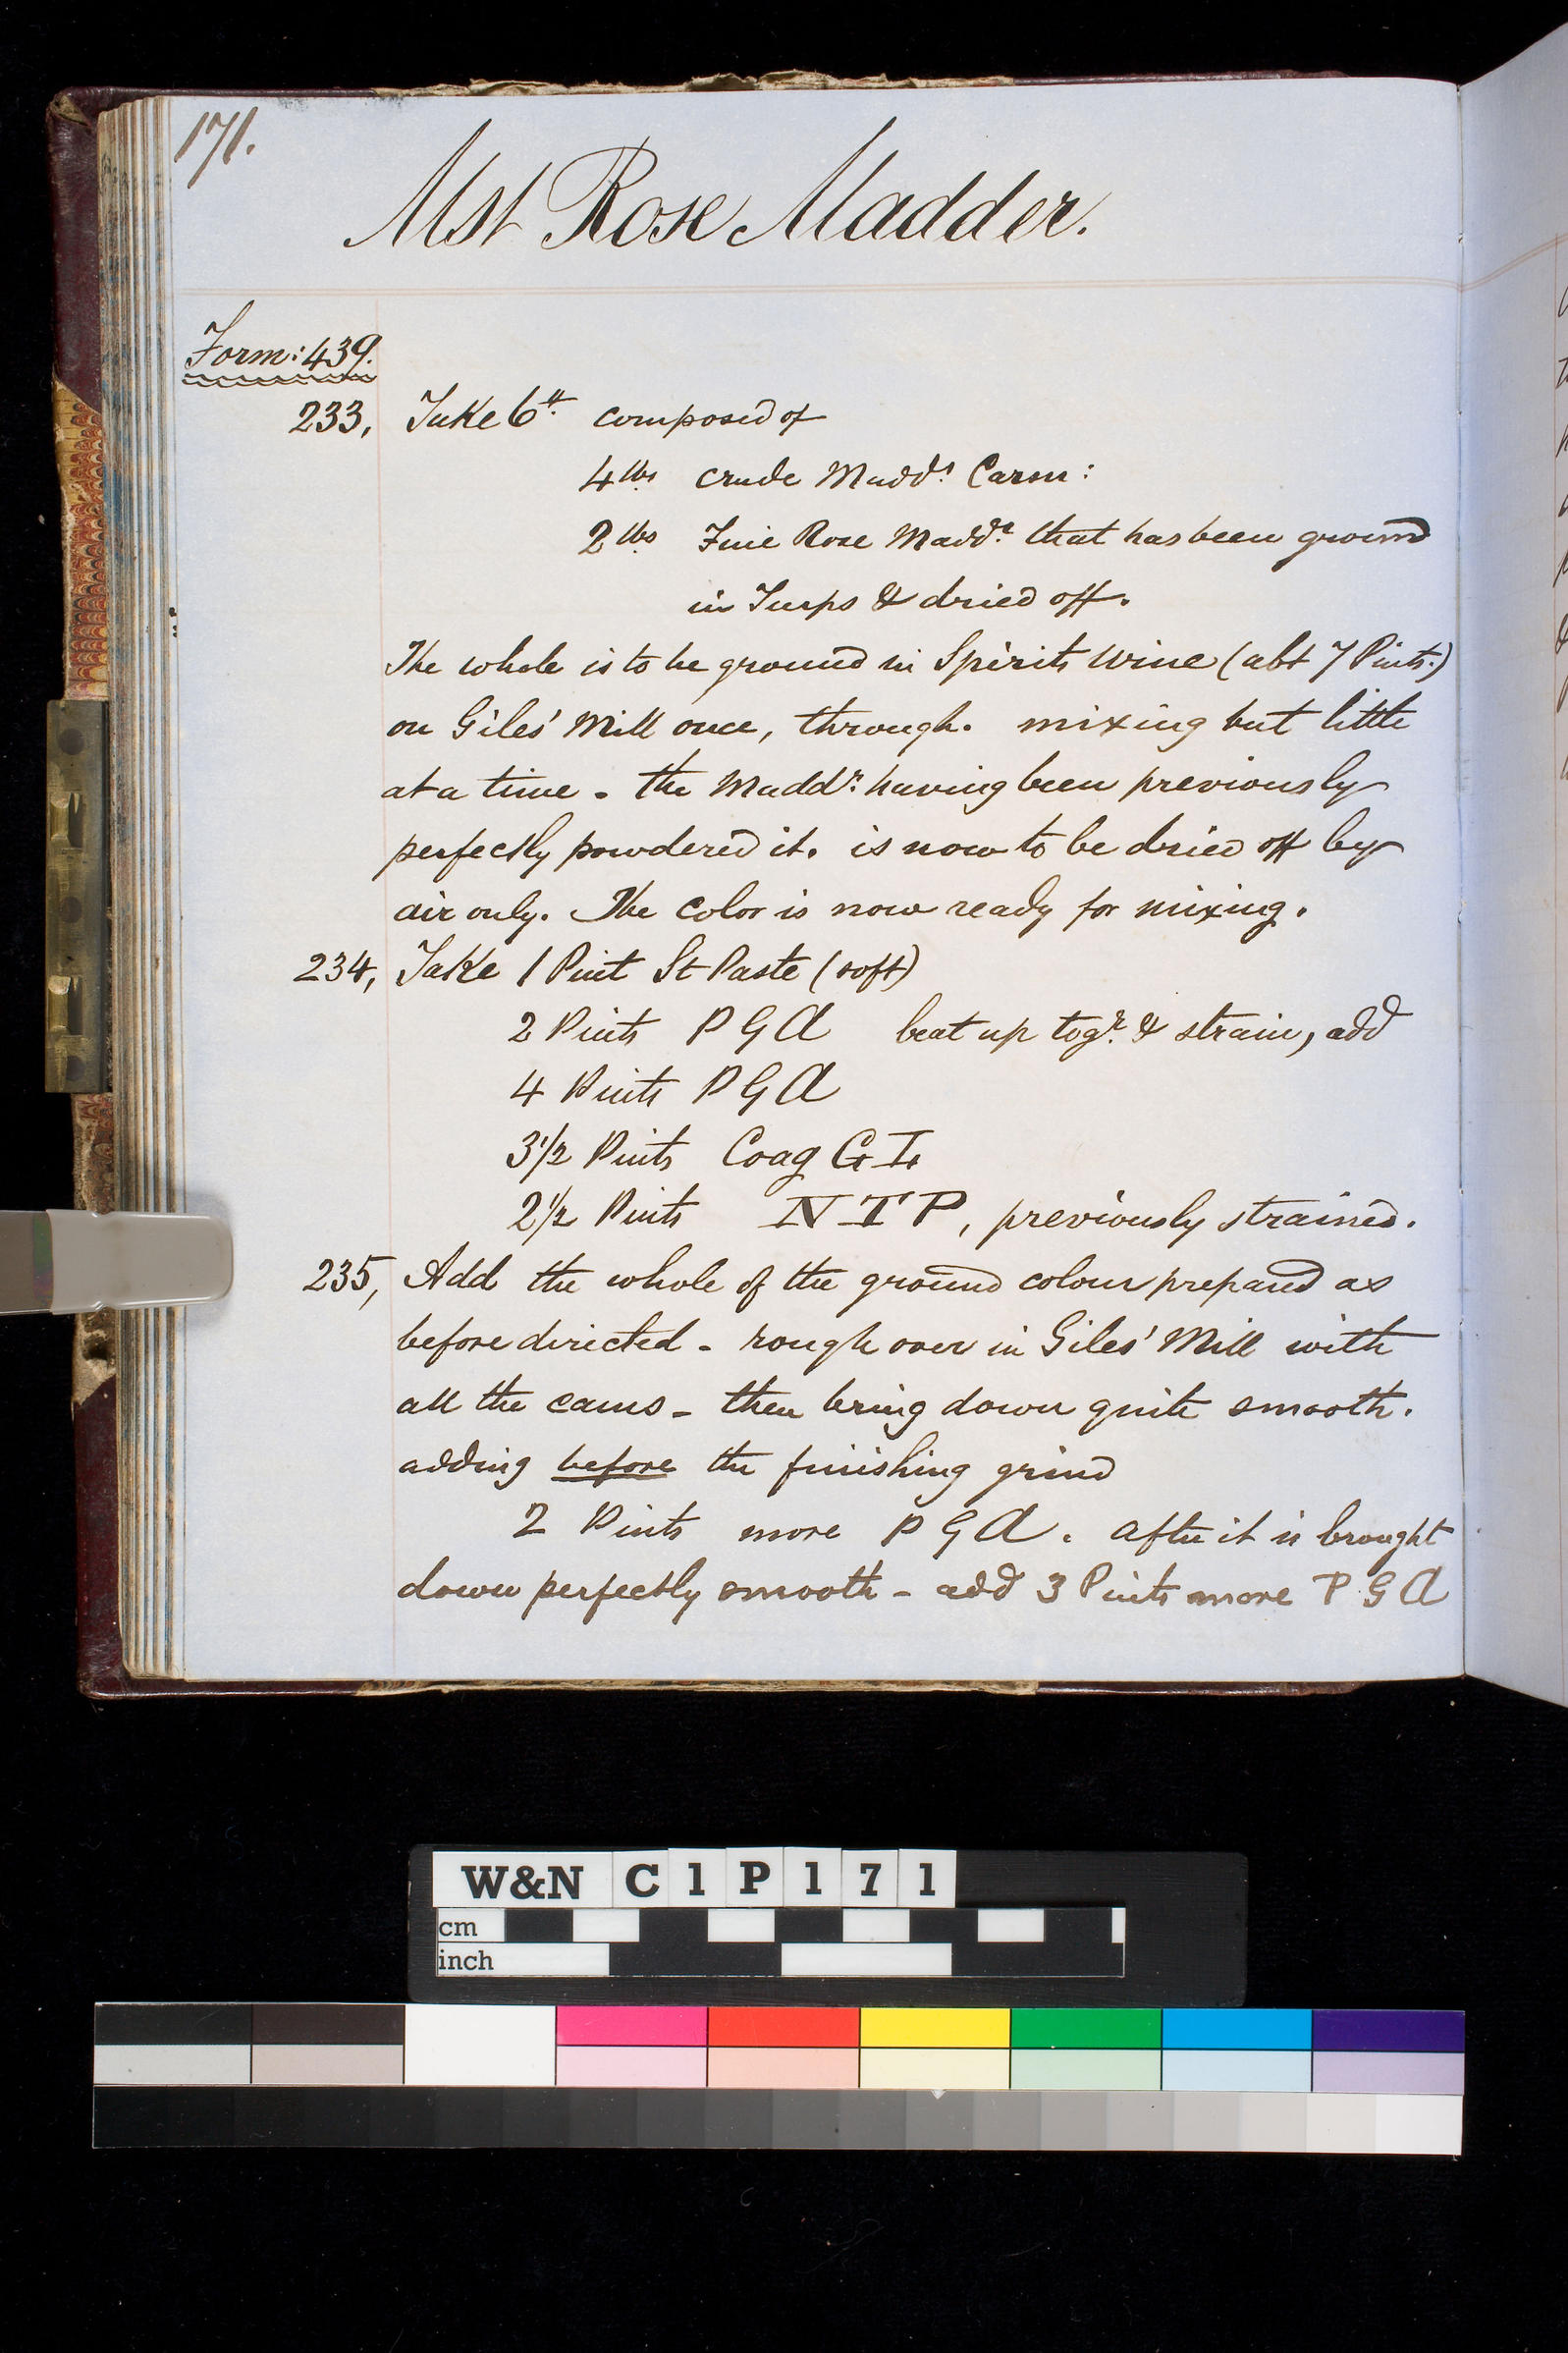 171.
Mst Rose Madder.
Form: 439.
233, Take 6 lb. composed of
4 lbs crude Maddr Carm:
2 lbs Fine Rose Maddr. that has been ground
in Turps & dried off.
The whole is to be ground in Spirits Wine (abt 7 Pints.)
on Giles' Mill once, through. mixing but little
at a time - the Maddr: having been previously
perfectly powdered it. is now to be dried off by
air only. The color is now ready for mixing.
234, Take 1 Pint St Paste (soft)
2 Pints P G A beat up togr. & strain, add
4 Pints P G A
3 1/2 Pints Coag G I
2 1/2 Pints N T P, previously strained.
235, Add the whole of the ground colour prepared as
before directed - rough over in Giles' Mill with
all the cams - then bring down quite smooth.
adding before the finishing grind
2 Pints more P G A. after it is brought
down perfectly smooth - add 3 Pints more P G A
W&N C1P171
cm
inch